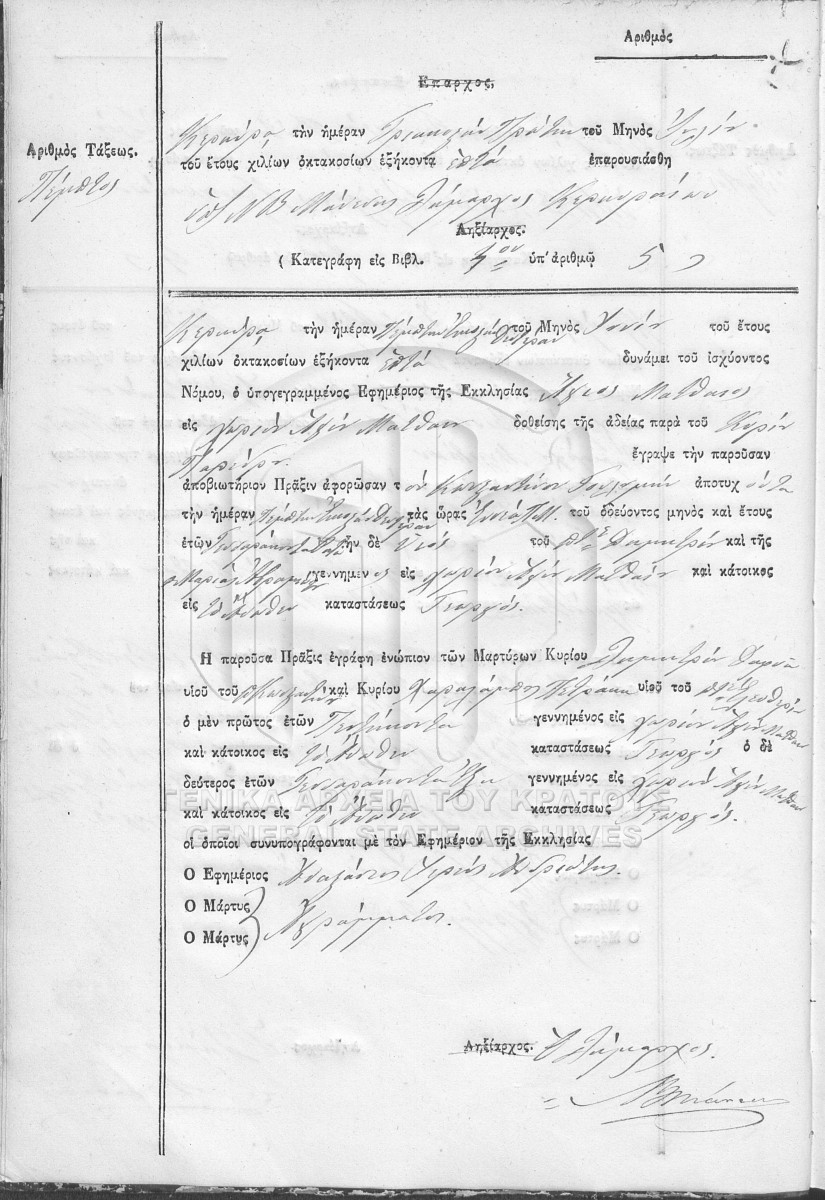 Αριθμὸς
Επαρχος,
Κερκύρα, τὴν ἡμέραν Τριακοστὴν Πρώτην τοῦ Μηνὸς
Αριθμὸς Τάξεως.
Πέμπτος
τοῦ ἔτους χιλίων ὀκτακοσίων ἑξήκοντα ἑπτὰ ἐπαρουσιάσθη
Δήμαρχος Κερκυραίων
Ληξίαρχος.
( Κατεγράφη εἰς Βιβλ. 1ον ὑπ' ἀριθμῷ 5 )
Κερκύρα, τὴν ἡμέραν Πέμπτην τοῦ Μηνὸς τοῦ ἔτους
χιλίων ὀκτακοσίων ἑξήκοντα ἑπτὰ δυνάμει τοῦ ἰσχύοντος
Νόμου, ὁ ὑπογεγραμμένος Εφημέριος τῆς Εκκλησίας Ἅγιος Ματθαιος
εἰς χωρίον Ἁγίου Ματθαίου δοθείσης τῆς ἀδείας παρὰ τοῦ Κυρίου
ἔγραψε τὴν παροῦσαν
ἀποβιωτήριον Πρᾶξιν ἀφορῶσαν τ ὸν Κωνσταντῖνον ἀποτυχ όντα
τὴν ἡμέραν Πέμπτην τὰς ὥρας Ἐννέα Π.Μ. τοῦ ὁδεύοντος μηνὸς καὶ ἔτους
ἐτῶν ἦτην δὲ Υἱὸς τοῦ Δημητρίου καὶ τῆς
Μαρίας γεγεννημεν ος εἰς χωρίον Ἁγίου Ματθαίου καὶ κάτοικος
εἰς τὸ Ἄνωθεν καταστάσεως Γεωργός.
Η παροῦσα Πρᾶξις ἐγράφη ἐνώπιον τῶν Μαρτύρων Κυρίου Δημητρίου
υἱοῦ τοῦ καὶ Κυρίου Χαραλάμπος Πετράκη υἱοῦ τοῦ
ὁ μὲν πρῶτος ἐτῶν Πενήκοντα γεννημένος εἰς χωρίον Ἁγίου Ματθαίου
καὶ κάτοικος εἰς τὸ Ἄνωθεν καταστάσεως Γεωργός ὁ δὲ
δεύτερος ἐτῶν Τεσσαράκοντα Ἕξη γεννημένος εἰς χωρίον Ἁγίου Ματθαίου
καὶ κάτοικος εἰς Τὸ Ἄνωθεν καταστάσεως Γεωργός.
οἱ ὁποῖοι συνυπογράφονται μὲ τὸν Εφημέριον τῆς Εκκλησίας
Ο Εφημέριος Ἱερεύς
Ο Μάρτυς
Ἀγράμματοι.
Ο Μάρτυς
Ληξίαρχος. Ὁ Δήμαρχος.
ΓΕΝΙΚΑ ΑΡΧΕΙΑ ΤΟΥ ΚΡΑΤΟΥΣ
GENERAL STATE ARCHIVES